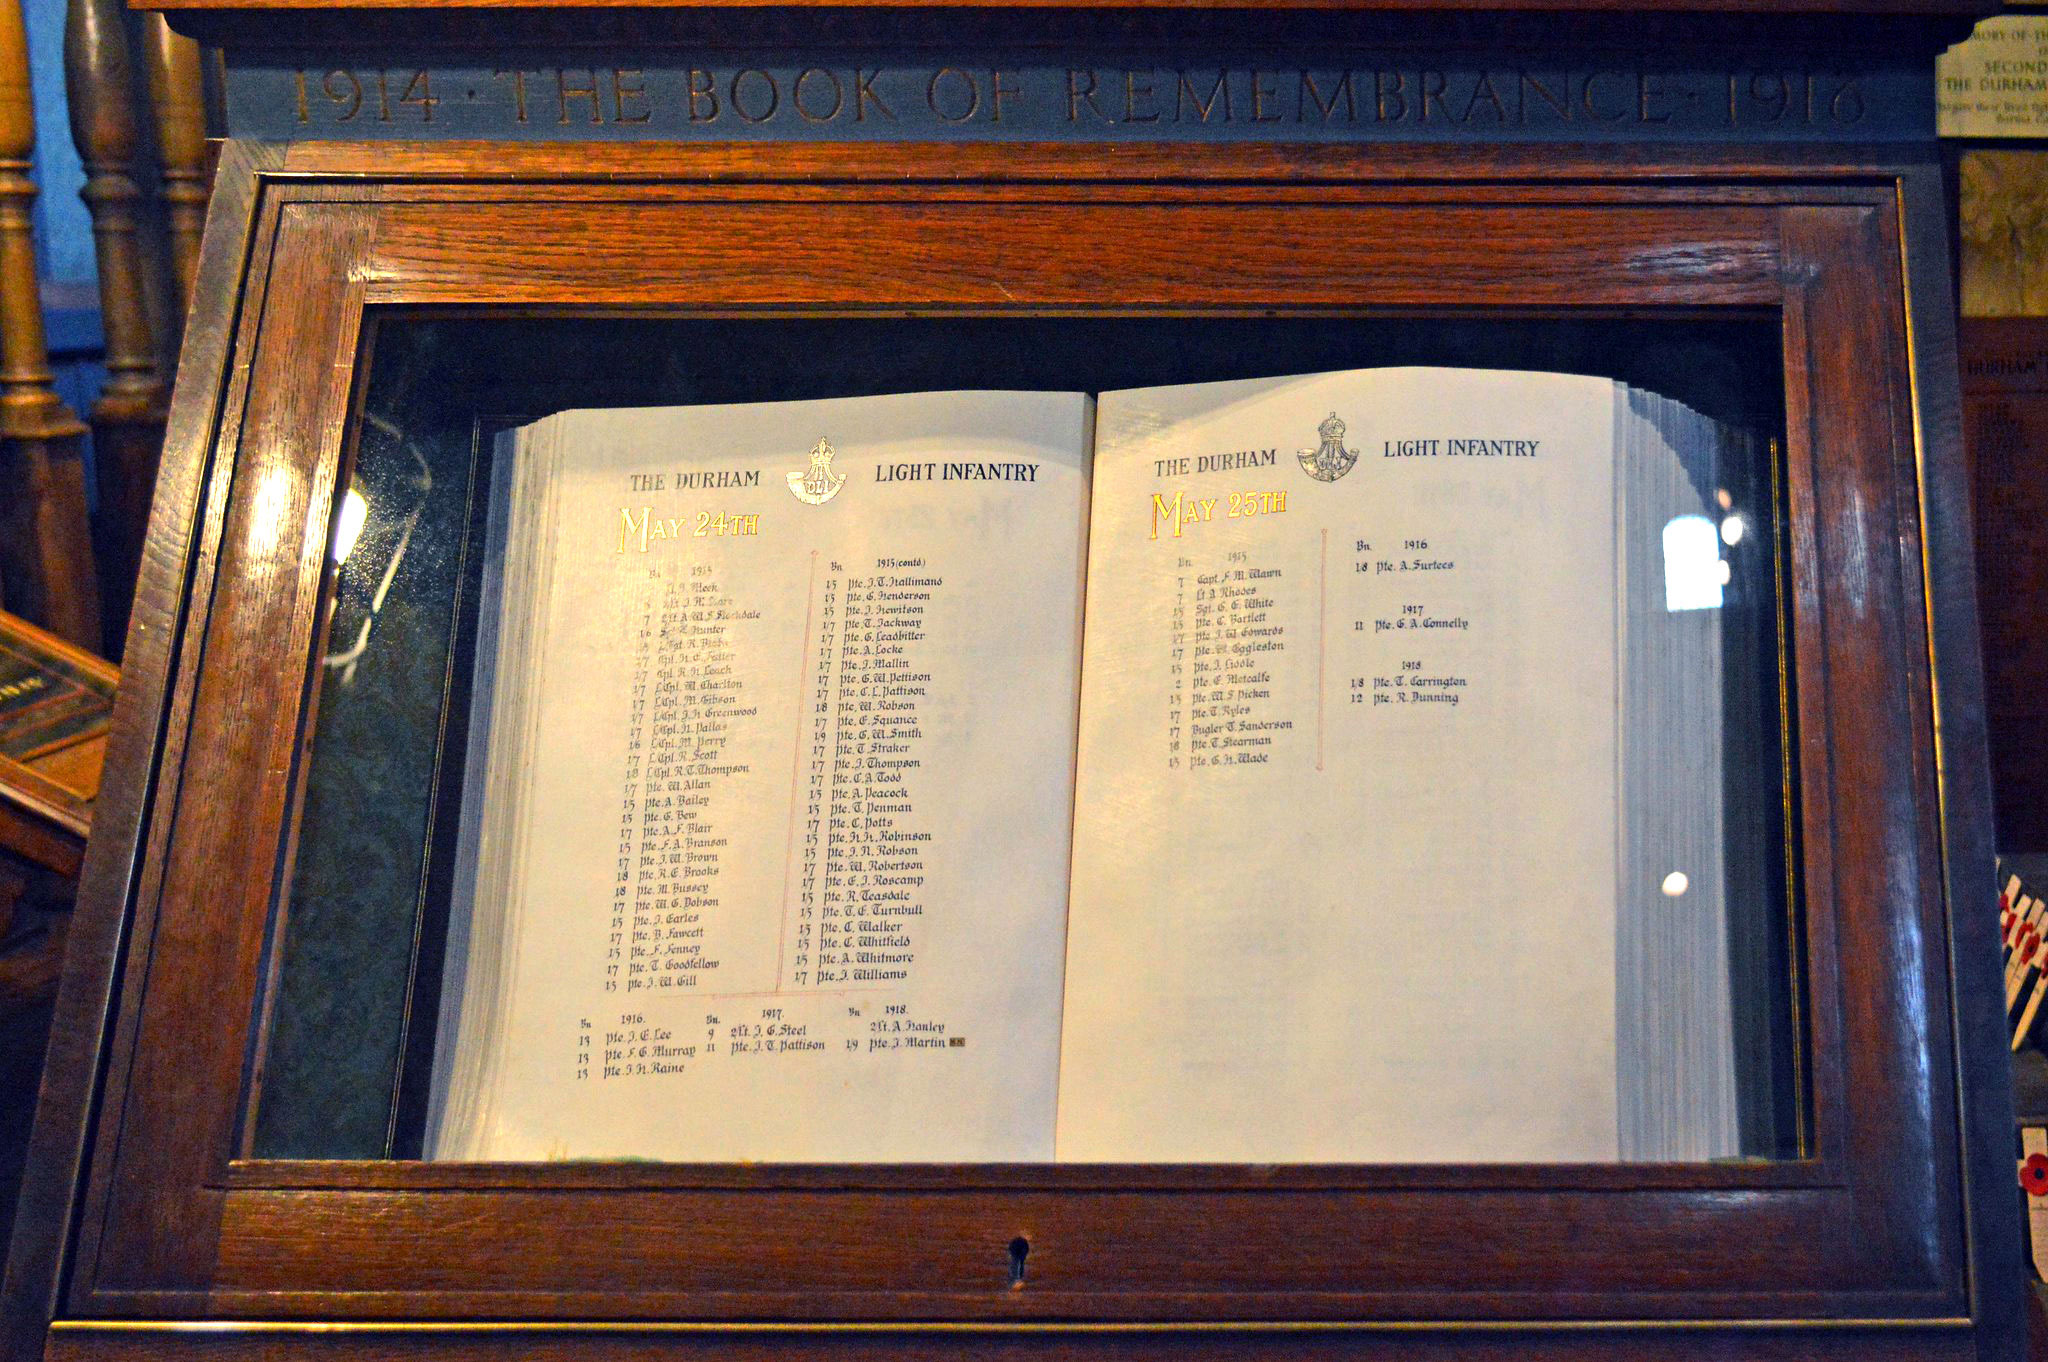 1914 · THE BOOK OF REMEMBRANCE · 1918
THE DURHAM DLI LIGHT INFANTRY
MAY 24TH
Bn 1915
Meek
2Lt. J.
7 2Lt. A. W. S. Stockdale
1/6 Hunter
Sgt. R.
Cpl. H. C.
1/7 Cpl. R. H. Leach
1/7 L/Cpl. W. Charlton
1/7 L/Cpl. M. Gibson
1/7 L/Cpl. J. H. Greenwood
1/7 L/Cpl. H. Pallas
1/6 L/Cpl. M. Perry
1/7 L/Cpl. R. Scott
1/8 L/Cpl. R. T. Thompson
1/7 Pte. W. Allan
1/5 Pte. A. Bailey
1/5 Pte. G. Bew
1/7 Pte. A. F. Blair
1/5 Pte. F. A. Branson
1/7 Pte. J. W. Brown
1/8 Pte. R. E. Brooks
1/8 Pte. M. Bussey
1/7 Pte. W. G. Dobson
1/5 Pte. J. Earles
1/7 Pte. B. Fawcett
1/5 Pte. F. Fenney
1/7 Pte. T. Goodfellow
1/5 Pte. J. W. Gill
Bn 1915 (contd.)
1/5 Pte. J. T. Hallimand
1/5 Pte. G. Henderson
1/5 Pte. J. Hewitson
1/7 Pte. T. Jackway
1/7 Pte. G. Leadbitter
1/7 Pte. A. Locke
1/7 Pte. J. Mallin
1/7 Pte. G. W. Pettison
1/7 Pte. C. L. Pattison
1/8 Pte. W. Robson
1/7 Pte. E. Squance
1/9 Pte. G. W. Smith
1/7 Pte. T. Straker
1/7 Pte. J. Thompson
1/7 Pte. C. A. Todd
1/5 Pte. A. Peacock
1/5 Pte. T. Penman
1/7 Pte. C. Potts
1/5 Pte. H. H. Robinson
1/5 Pte. J. R. Robson
1/7 Pte. W. Robertson
1/7 Pte. E. J. Roscamp
1/5 Pte. R. Teasdale
1/5 Pte. T. E. Turnbull
1/5 Pte. C. Walker
1/5 Pte. C. Whitfield
1/5 Pte. A. Whitmore
1/7 Pte. J. Williams
Bn 1916.
13 Pte. J. E. Lee
13 Pte. F. G. Murray
13 Pte. J. H. Raine
Bn. 1917.
9 2Lt. J. G. Steel
11 Pte. J. T. Pattison
Bn 1918.
2Lt. A. Hanley
1/9 Pte. J. Martin
THE DURHAM LIGHT INFANTRY
MAY 25TH
Bn. 1915
7 Capt. F. M. Wawn
7 Lt. A. Rhodes
1/5 Sgt. G. E. White
1/5 Pte. C. Bartlett
1/7 Pte. J. W. Edwards
1/7 Pte. Eggleston
1/5 Pte. J. Liddle
2 Pte. E. Metcalfe
1/5 Pte. W. S. Picken
1/7 Pte. T. Ryles
1/7 Bugler T. Sanderson
1/8 Pte. T. Stearman
1/5 Pte. G. H. Wade
Bn. 1916
1/8 Pte. A. Surtees
1917
11 Pte. G. A. Connelly
1918
1/8 Pte. T. Carrington
12 Pte. R. Dunning
SECOND
THE DURHAM
DURHAM